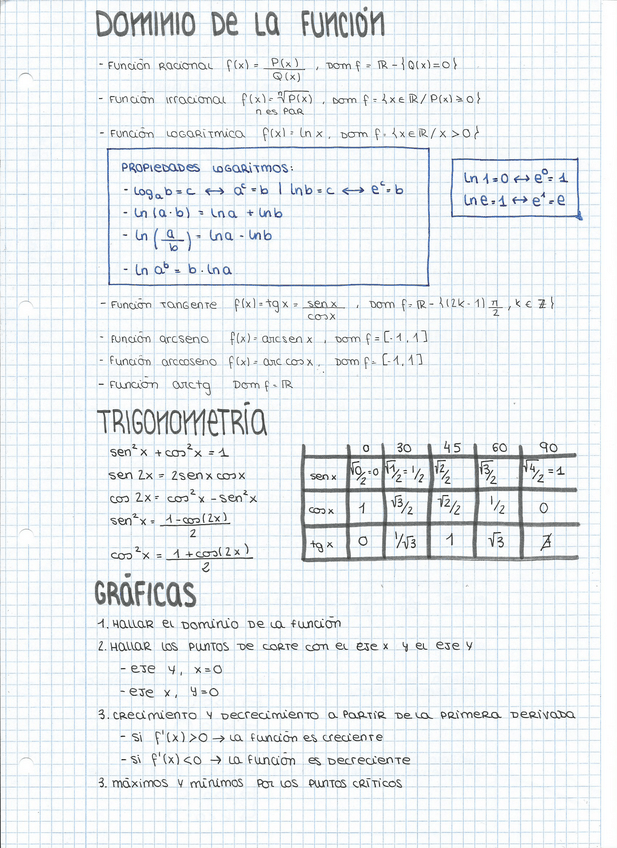 DOMINIO DE LA FUNCIÓN
- FUNCIÓN RACIONAL f(x) = P(x)/Q(x) , DOM f = ℝ - {Q(x)=0}
- FUNCIÓN IRRACIONAL f(x) = ⁿ√P(x) , DOM f = {x ∈ ℝ / P(x) ≥ 0}
n es PAR
- FUNCIÓN LOGARÍTMICA f(x) = ln x , DOM f = {x ∈ ℝ / x > 0}
PROPIEDADES LOGARITMOS:
- logₐ b = c ↔ aᶜ = b | ln b = c ↔ eᶜ = b
- ln (a · b) = ln a + ln b
- ln (a/b) = ln a - ln b
- ln aᵇ = b · ln a
ln 1 = 0 ↔ e⁰ = 1
ln e = 1 ↔ e¹ = e
- FUNCIÓN TANGENTE f(x) = tg x = sen x/cos x , DOM f = ℝ - {(2k - 1) π/2 , k ∈ Z}
- FUNCIÓN arcseno f(x) = arcsen x , DOM f = [-1, 1]
- FUNCIÓN arccoseno f(x) = arc cos x , DOM f = [-1, 1]
- FUNCIÓN arctg DOM f = ℝ
TRIGONOMETRÍA
sen² x + cos² x = 1
sen 2x = 2 sen x cos x
cos 2x = cos² x - sen² x
sen² x = 1 - cos(2x)/2
cos² x = 1 + cos(2x)/2
0 30 45 60 90
sen x √0/2 = 0 √1/2 = 1/2 √2/2 √3/2 √4/2 = 1
cos x 1 √3/2 √2/2 1/2 0
tg x 0 1/√3 1 √3 ∄
GRÁFICAS
1. HALLAR EL DOMINIO DE LA FUNCIÓN
2. HALLAR LOS PUNTOS DE CORTE CON EL EJE X Y EL EJE Y
- EJE Y, X=0
- EJE X, Y=0
3. CRECIMIENTO Y DECRECIMIENTO A PARTIR DE LA PRIMERA DERIVADA
- SI f'(x) > 0 → LA FUNCIÓN ES CRECIENTE
- SI f'(x) < 0 → LA FUNCIÓN ES DECRECIENTE
3. MÁXIMOS Y MÍNIMOS POR LOS PUNTOS CRÍTICOS